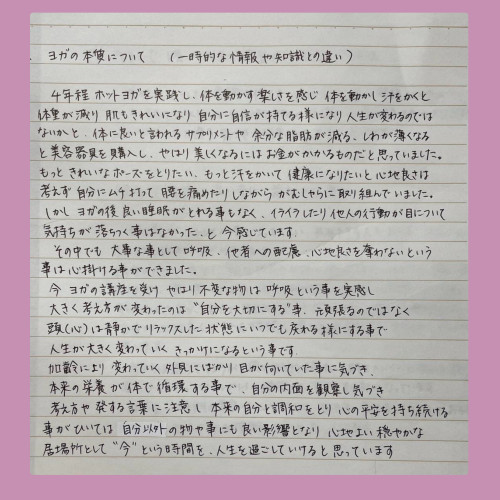 ヨガの本質について （一時的な情報や知識との違い）
4年程ホットヨガを実践し、体を動かす楽しさを感じ 体を動かし汗をかくと
体重が減り 肌もきれいになり 自分に自信が持てる様になり人生が変わるのでは
ないかと、体に良いと言われる サプリメントや 余分な脂肪が減る、しわが薄くなる
と美容器具を購入し、やはり美しくなるにはお金がかかるものだと思っていました。
もっときれいなポーズをとりたい、もっと汗をかいて健康になりたいと心地良さは
考えず自分にムチ打って 腰を痛めたりしながら がむしゃらに取り組んでいました。
しかしヨガの後良い睡眠がとれる事もなく、イライラしたり他人の行動が目について
気持ちが落ちつく事はなかった、と今感じています。
その中でも 大事な事として呼吸、他者への配慮、心地良さを奪わないという
事は心掛ける事ができました。
今 ヨガの講座を受け、やはり不変な物は 呼吸という事を実感し
大きく考え方が変わったのは "自分を大切にする"事、頑張るのではなく
頭(心)は静かでリラックスした状態にいつでも戻れる様にする事で
人生が大きく変わっていくきっかけになるという事です。
加齢により変わっていく外見にばかり目が向いていた事に気づき、
本来の栄養が体で循環する事で、自分の内面を観察し気づき
考え方や 発する言葉に注意し 本来の自分と調和をとり 心の平安を持ち続ける
事がひいては 自分以外の物や事にも良い影響となり 心地よい穏やかな
居場所として"今"という時間を、人生を過ごしていけると思っています